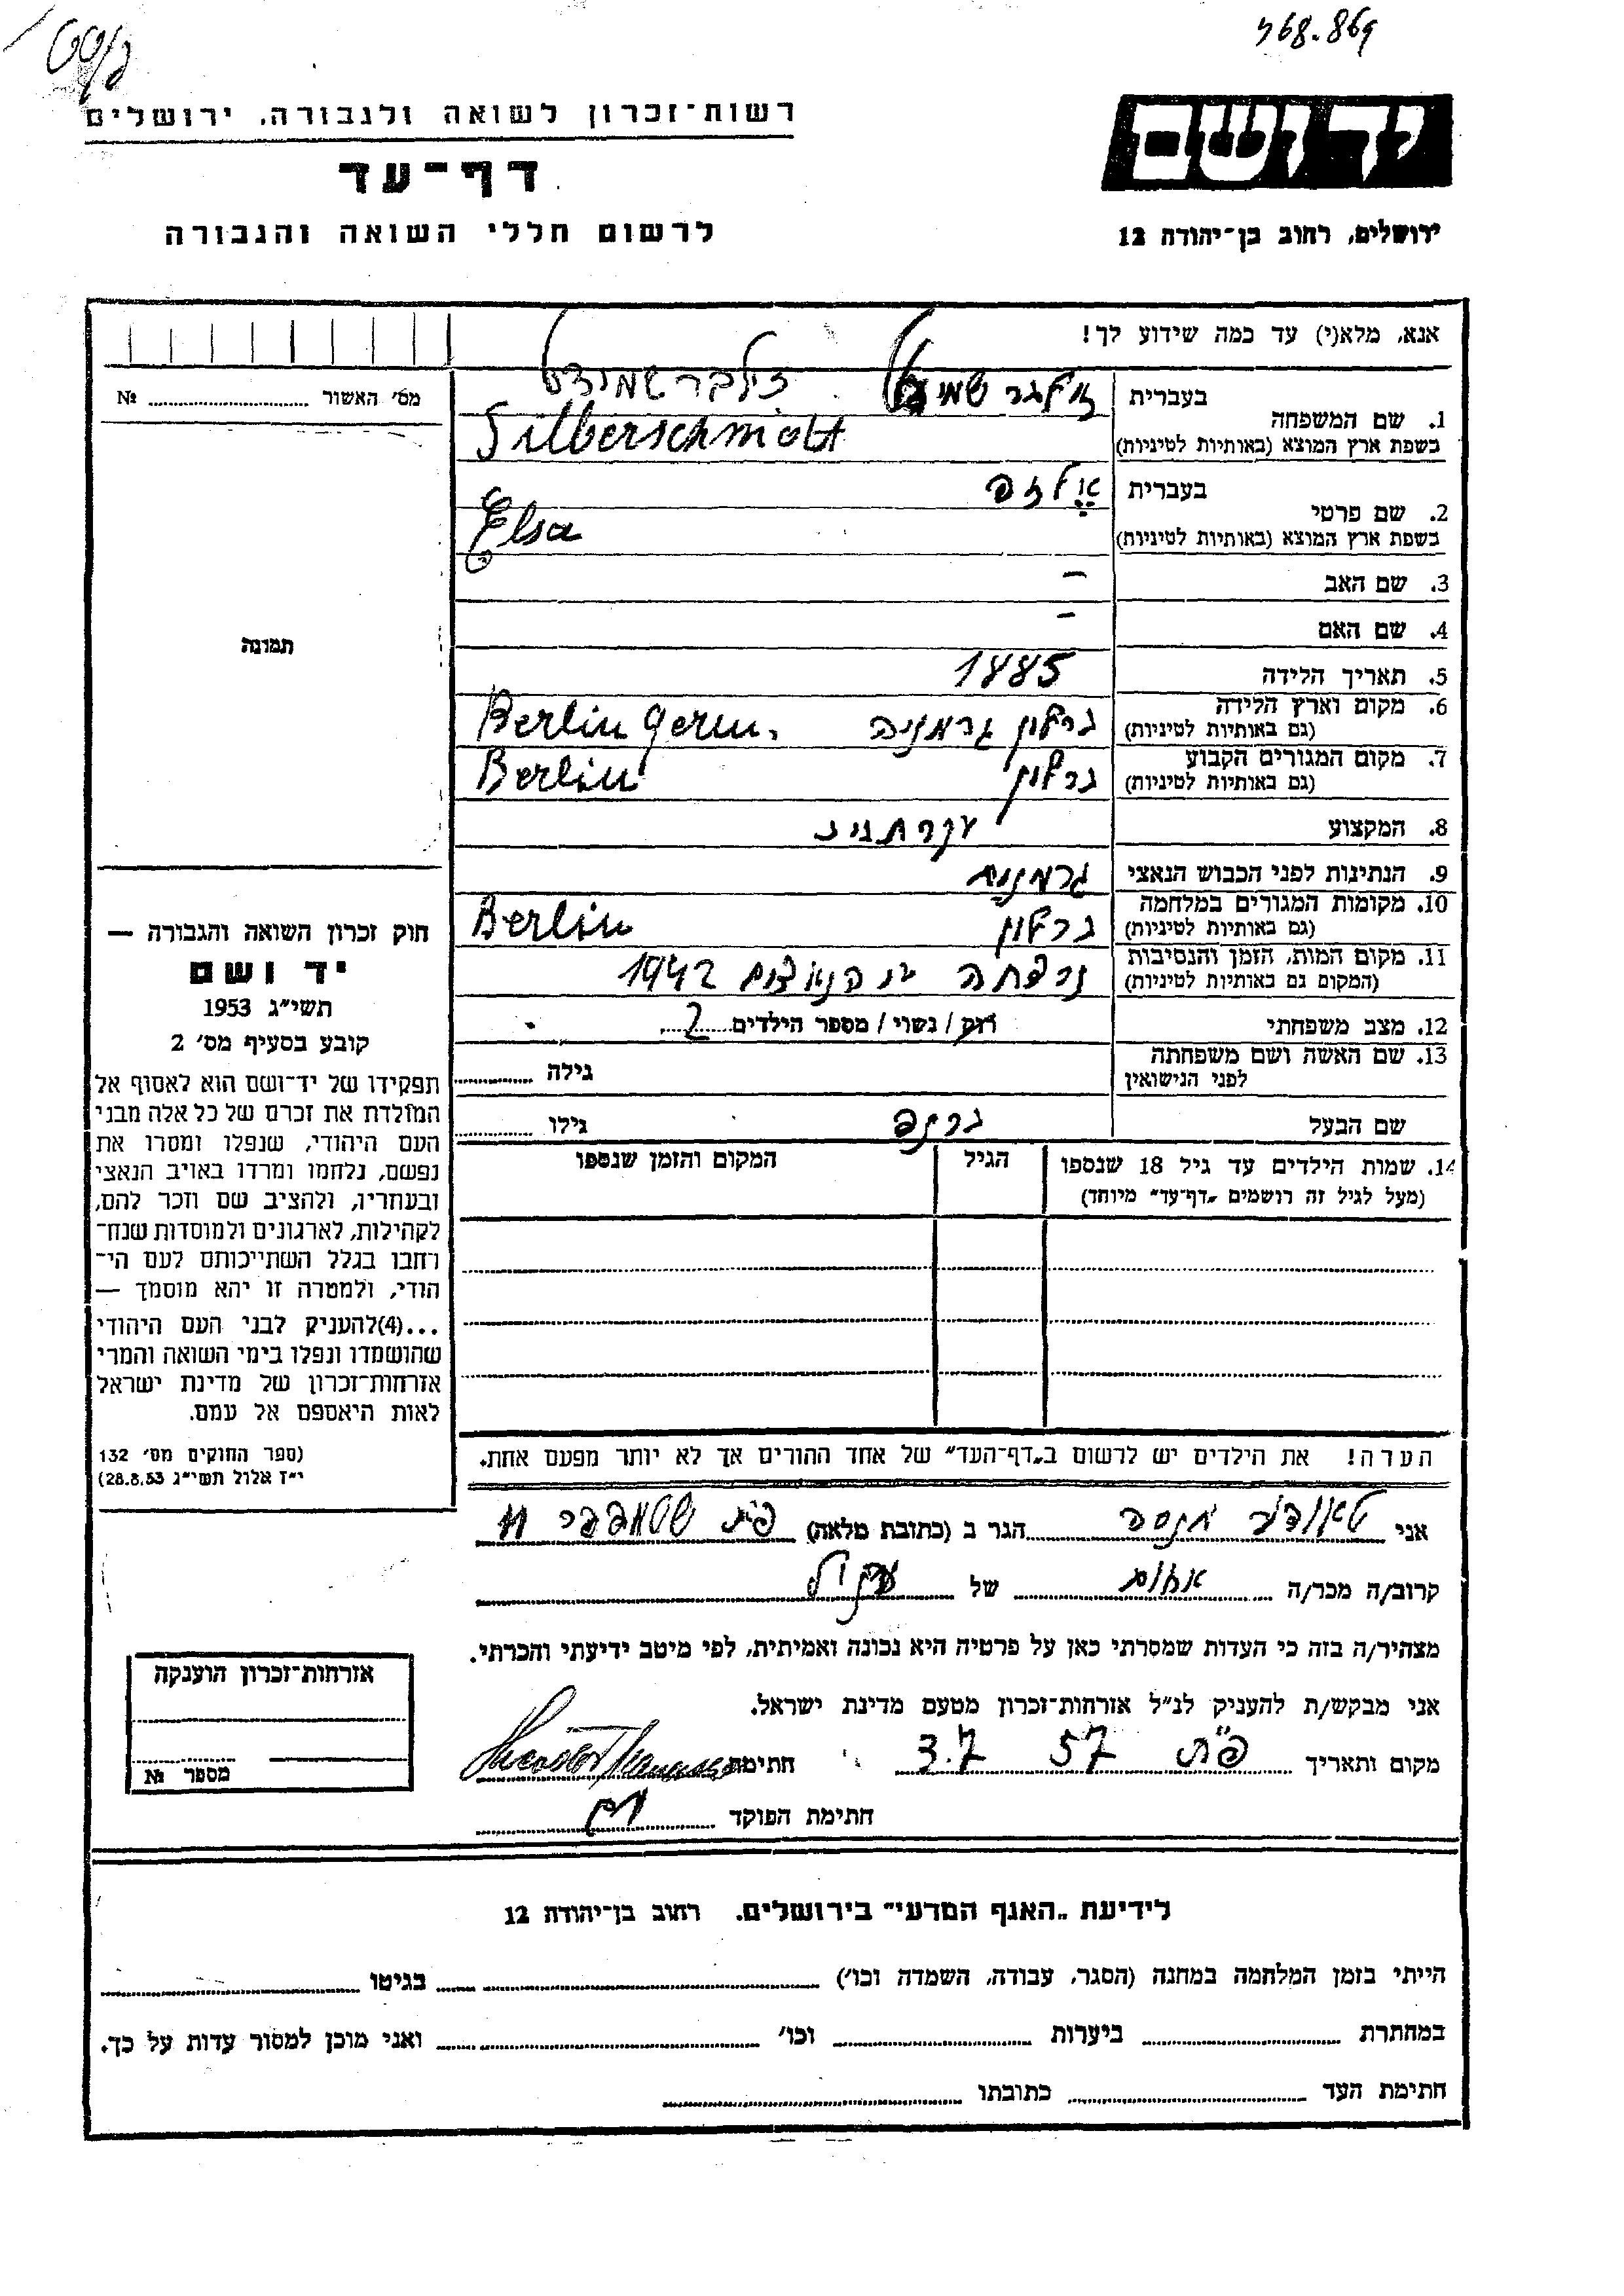 768.869
רשות־זכרון לשואה ולגבורה, ירושלים
יד ושם
דף־עד
לרשום חללי השואה והגבורה
ירושלים, רחוב בן־יהודה 12
אנא, מלא(י) עד כמה שידוע לך!
מס׳ האשור № 
1. שם המשפחה
בעברית זילברשמידט
בשפת ארץ המוצא (באותיות לטיניות) Silberschmidt
2. שם פרטי
בעברית אלזה
בשפת ארץ המוצא (באותיות לטיניות) Elsa
3. שם האב –
4. שם האם –
תמונה
5. תאריך הלידה 1885
6. מקום וארץ הלידה ברלין גרמניה Berlin Germ.
(גם באותיות לטיניות)
7. מקום המגורים הקבוע ברלין Berlin
(גם באותיות לטיניות)
8. המקצוע עקרת בית
9. הנתינות לפני הכבוש הנאצי גרמנית
10. מקומות המגורים במלחמה ברלין Berlin
(גם באותיות לטיניות)
11. מקום המות, הזמן והנסיבות נרצחה הנאצים 1942
(המקום גם באותיות לטיניות)
12. מצב משפחתי רווק / נשוי / מספר הילדים 2
13. שם האשה ושם משפחתה לפני הנישואין גילה
שם הבעל גילו
14. שמות הילדים עד גיל 18 שנספו
(מעל לגיל זה רושמים „דף־עד״ מיוחד)
הגיל
המקום והזמן שנספו
הערה! את הילדים יש לרשום ב„דף־העד״ של אחד ההורים אך לא יותר מפעם אחת.
חוק זכרון השואה והגבורה —
יד ושם
תשי״ג 1953
קובע בסעיף מס׳ 2
תפקידו של יד־ושם הוא לאסוף אל
המולדת את זכרם של כל אלה מבני
העם היהודי, שנפלו ומסרו את
נפשם, נלחמו ומרדו באויב הנאצי
ובעוזריו, ולהציב שם וזכר להם,
לקהילות, לארגונים ולמוסדות שנח־
רבו בגלל השתייכותם לעם הי־
הודי, ולמטרה זו יהא מוסמך —
...(4)להעניק לבני העם היהודי
שהושמדו ונפלו בימי השואה והמרי
אזרחות־זכרון של מדינת ישראל
לאות היאספם אל עמם.
(ספר החוקים מס׳ 132
י״ז אלול תשי״ג 28.8.53)
אני הגר ב (כתובת מלאה)
קרוב/ה מכר/ה של
מצהיר/ה בזה כי העדות שמסרתי כאן על פרטיה היא נכונה ואמיתית, לפי מיטב ידיעתי והכרתי.
אני מבקש/ת להעניק לנ״ל אזרחות־זכרון מטעם מדינת ישראל.
מקום ותאריך פ״ת 3.7 57 חתימת
חתימת הפוקד
אזרחות־זכרון הוענקה
מספר №
לידיעת „האגף המדעי״ בירושלים. רחוב בן־יהודה 12
הייתי בזמן המלחמה במחנה (הסגר, עבודה, השמדה וכו׳) בגיטו
במחתרת ביערות וכו׳ ואני מוכן למסור עדות על כך.
חתימת העד כתובתו